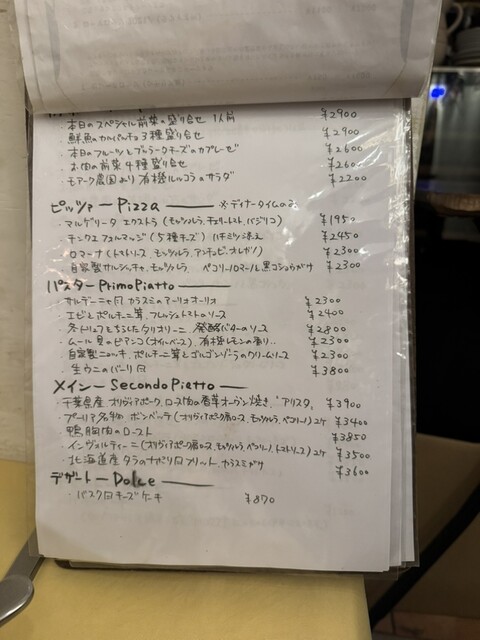 ・本日のスペシャル前菜の盛り合せ 1人前 ¥2900
・鮮魚のカルパッチョ3種盛り合せ ¥2900
・本日のフルーツとブッラータチーズのカプレーゼ ¥2600
・お肉の前菜4種盛り合せ ¥2600
・モアーク農園より有機ルッコラのサラダ ¥2200
ピッツァ ー Pizza ー ※ディナータイムのみ
・マルゲリータ エクストラ (モッツァレラ、チェリートマト、バジリコ) ¥1950
・チンクエ フォルマッジ (5種チーズ) ハチミツ添え ¥2450
・ロマーナ (トマトソース、モッツァレラ、アンチョビ、オレガノ) ¥2300
・自家製サルシッチャ、モッツァレラ、ペコリーノロマーノと黒コショウがけ ¥2300
パスタ ー Primo Piatto ー
・サルデーニャ風 カラスミのアーリオオーリオ ¥2300
・エビとポルチーニ茸、フレッシュトマトのソース ¥2400
・冬トリュフをちらしたタリオリーニ 発酵バターのソース ¥2800
・ムール貝のビアンコ(オイルベース)、有機レモンの香り.. ¥2300
・自家製ニョッキ、ポルチーニ茸とゴルゴンゾーラのクリームソース ¥2300
・生ウニのバーリ風 ¥3800
メイン ー Secondo Piatto ー
・千葉県産 オリヴィアポーク、ロース肉の香草オーブン焼き、"アリスタ" ¥3900
・プーリア名物 ボンベッテ(オリヴィアポーク肩ロース、モッツァレラ、ペコリーノ) 2ケ ¥3400
・鴨胸肉のロースト ¥3850
・インヴォルティーニ(オリヴィアポーク肩ロース、モッツァレラ、ペコリーノ、トマトソース) 2ケ ¥3500
・北海道産タラのナポリ風フリット、カラスミがけ ¥3600
デザート ー Dolce ー
・バスク風チーズケーキ ¥870